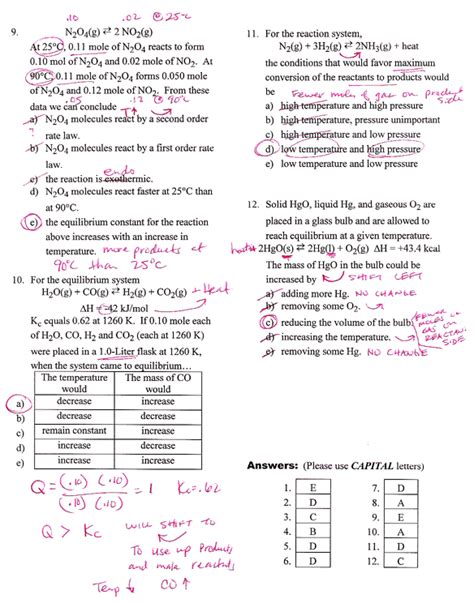 .10 .02 @ 25°C
9. N2O4(g) ⇄ 2 NO2(g)
At 25°C, 0.11 mole of N2O4 reacts to form
0.10 mol of N2O4 and 0.02 mole of NO2. At
90°C, 0.11 mole of N2O4 forms 0.050 mole
of N2O4 and 0.12 mole of NO2. From these
.05 .12 @ 90°C
data we can conclude
a) N2O4 molecules react by a second order
rate law.
b) N2O4 molecules react by a first order rate
law.
endo
c) the reaction is exothermic.
d) N2O4 molecules react faster at 25°C than
at 90°C.
e) the equilibrium constant for the reaction
above increases with an increase in
temperature. more products at
90°C than 25°C
10. For the equilibrium system
H2O(g) + CO(g) ⇄ H2(g) + CO2(g) + Heat
ΔH = -42 kJ/mol
Kc equals 0.62 at 1260 K. If 0.10 mole each
of H2O, CO, H2 and CO2 (each at 1260 K)
were placed in a 1.0-Liter flask at 1260 K,
when the system came to equilibrium…
The temperature would The mass of CO would
a) decrease increase
b) decrease decrease
c) remain constant increase
d) increase decrease
e) increase increase
Q = (.10)(.10) / (.10)(.10) = 1 Kc = .62
Q > Kc will SHIFT to
To use up Products
and make reactants
Temp ↓ CO ↑
11. For the reaction system,
N2(g) + 3H2(g) ⇄ 2NH3(g) + heat
the conditions that would favor maximum
conversion of the reactants to products would
be Fewer moles of gas on product
side
a) high temperature and high pressure
b) high temperature, pressure unimportant
c) high temperature and low pressure
d) low temperature and high pressure
e) low temperature and low pressure
12. Solid HgO, liquid Hg, and gaseous O2 are
placed in a glass bulb and are allowed to
reach equilibrium at a given temperature.
heat + 2HgO(s) ⇄ 2Hg(l) + O2(g) ΔH = +43.4 kcal
The mass of HgO in the bulb could be
increased by SHIFT LEFT
a) adding more Hg. NO CHANGE
b) removing some O2.
c) reducing the volume of the bulb.
d) increasing the temperature.
e) removing some Hg. NO CHANGE
FEWER
MOLES OF
GAS ON
REACTANT
SIDE
Answers: (Please use CAPITAL letters)
1. E 7. D
2. D 8. A
3. C 9. E
4. B 10. A
5. D 11. D
6. D 12. C